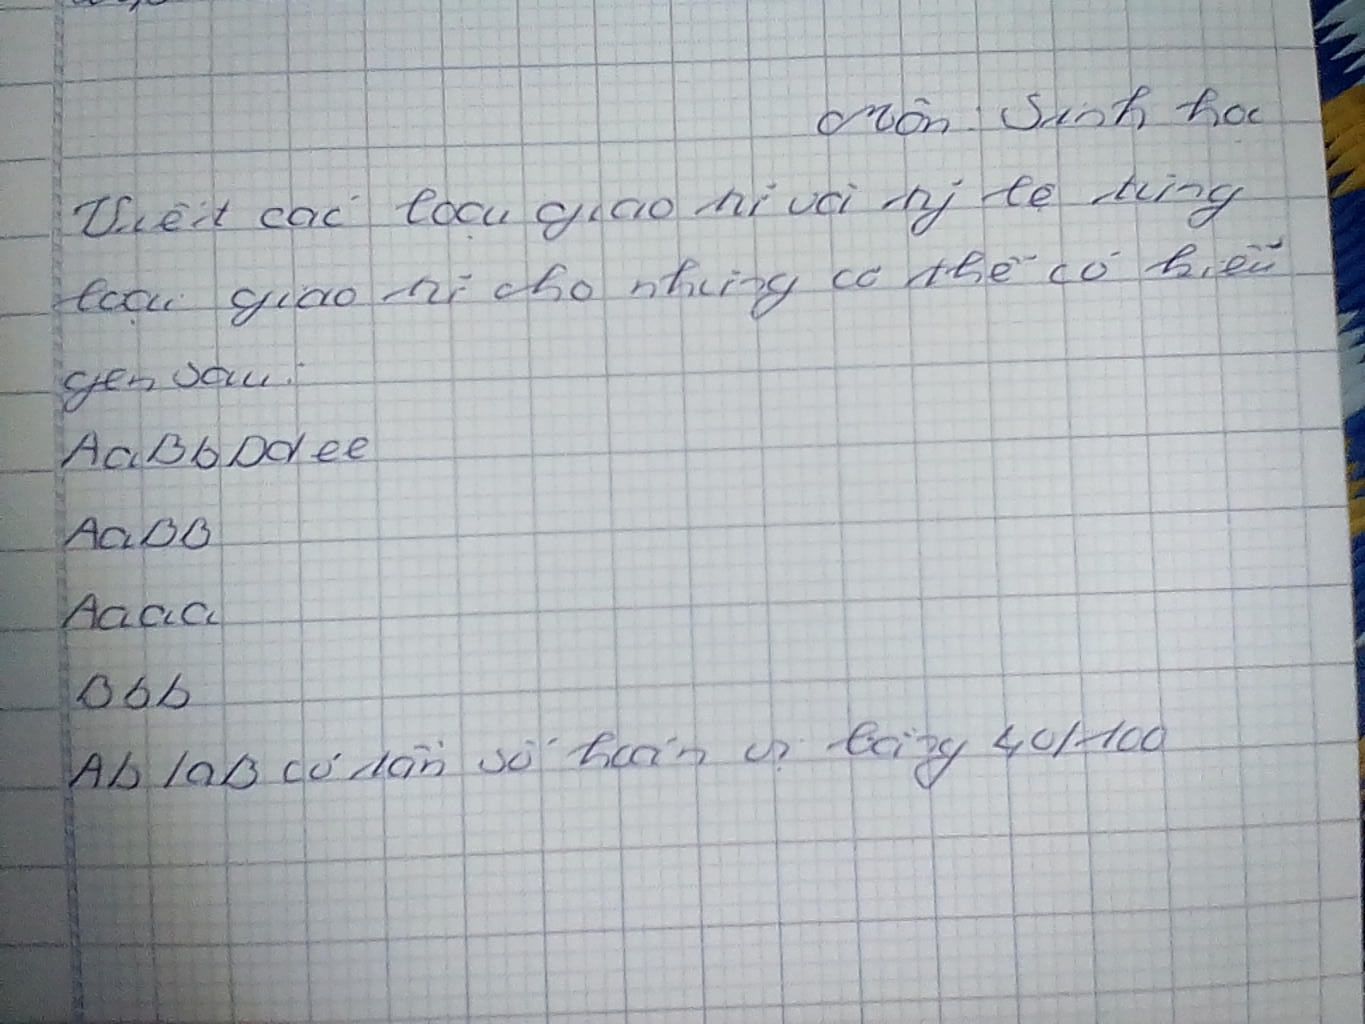 Môn: Sinh học
Viết các loại giao tử với tỷ lệ từng
loại giao tử cho những cơ thể có kiểu
gen sau:
AaBbDdee
AaBB
Aaaa
Bbb
Ab/aB có tần số hoán vị bằng 40/100